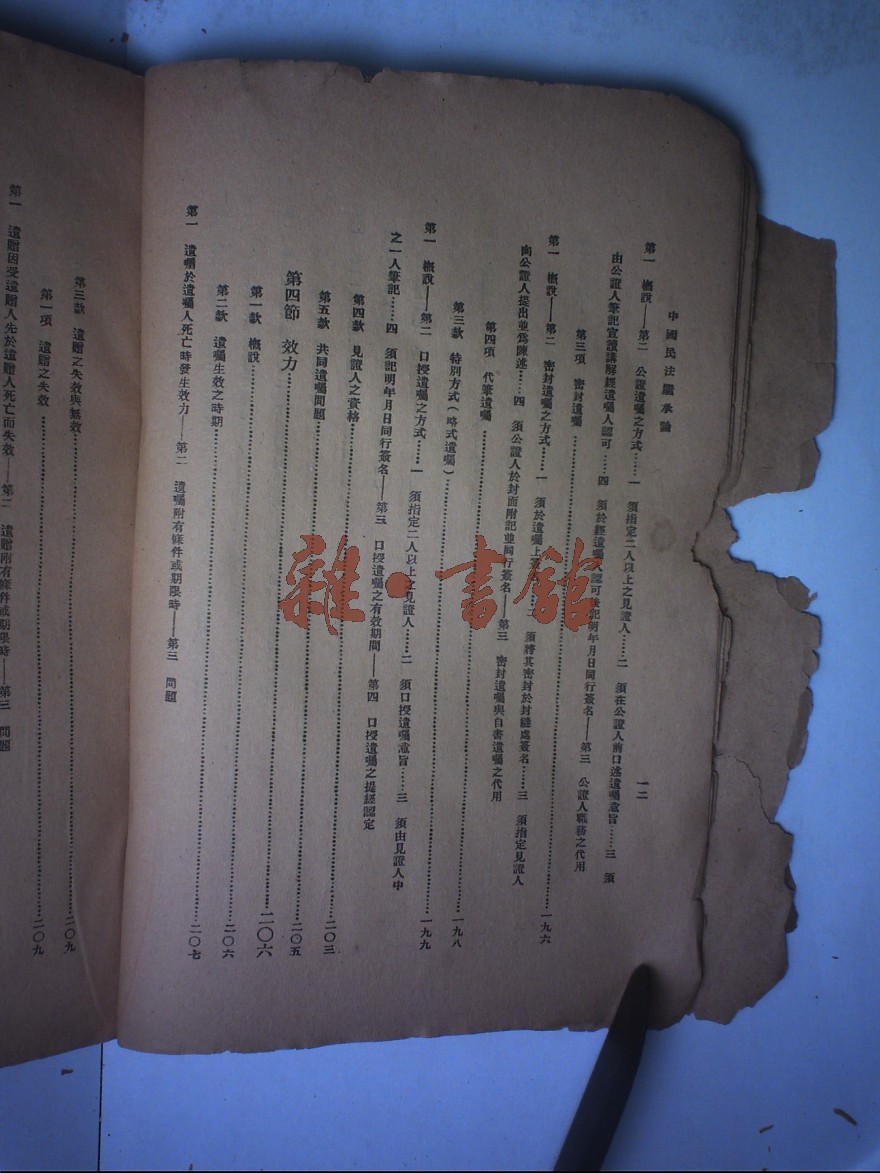 中國民法繼承論 一二
第一 概說——第二 公證遺囑之方式……一 須指定二人以上之見證人……二 須在公證人前口述遺囑意旨……三 須
由公證人筆記宣讀講解經遺囑人認可……四 須於經遺囑人認可後記明年月日同行簽名——第三 公證人職務之代用
第三項 密封遺囑……一九六
第一 概說——第二 密封遺囑之方式……一 須於遺囑上簽名……二 須將其密封於封縫處簽名……三 須指定見證人
向公證人提出並爲陳述……四 須公證人於封面附記並同行簽名——第三 密封遺囑與自書遺囑之代用
第四項 代筆遺囑……一九八
第三款 特別方式(略式遺囑)……一九九
第一 概說——第二 口授遺囑之方式……一 須指定二人以上之見證人……二 須口授遺囑意旨……三 須由見證人中
之一人筆記……四 須記明年月日同行簽名——第三 口授遺囑之有效期間——第四 口授遺囑之提經認定
第四款 見證人之資格……二〇三
第五款 共同遺囑問題……二〇五
第四節 效力……二〇六
第一款 概說……二〇六
第二款 遺囑生效之時期……二〇七
第一 遺囑於遺囑人死亡時發生效力——第二 遺囑附有條件或期限時——第三 問題
第三款 遺贈之失效與無效……二〇九
第一項 遺贈之失效……二〇九
第一 遺贈因受遺贈人先於遺贈人死亡而失效——第二 遺贈附有條件或期限時——第三 問題
雜·書館